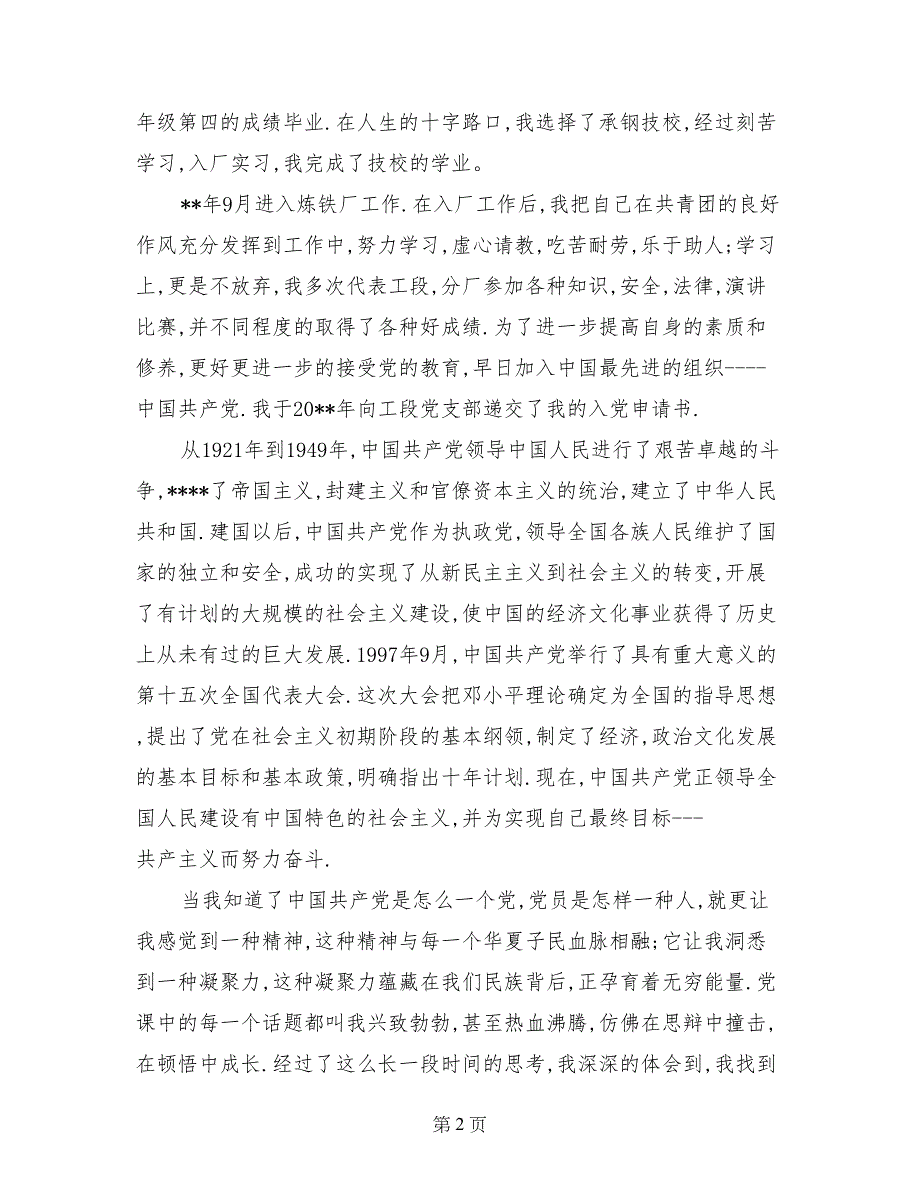 年级第四的成绩毕业.在人生的十字路口,我选择了承钢技校,经过刻苦
学习,入厂实习,我完成了技校的学业。
**年9月进入炼铁厂工作.在入厂工作后,我把自己在共青团的良好
作风充分发挥到工作中,努力学习,虚心请教,吃苦耐劳,乐于助人;学习
上,更是不放弃,我多次代表工段,分厂参加各种知识,安全,法律,演讲
比赛,并不同程度的取得了各种好成绩.为了进一步提高自身的素质和
修养,更好更进一步的接受党的教育,早日加入中国最先进的组织----
中国共产党.我于20**年向工段党支部递交了我的入党申请书.
从1921年到1949年,中国共产党领导中国人民进行了艰苦卓越的斗
争,****了帝国主义,封建主义和官僚资本主义的统治,建立了中华人民
共和国.建国以后,中国共产党作为执政党,领导全国各族人民维护了国
家的独立和安全,成功的实现了从新民主主义到社会主义的转变,开展
了有计划的大规模的社会主义建设,使中国的经济文化事业获得了历史
上从未有过的巨大发展.1997年9月,中国共产党举行了具有重大意义的
第十五次全国代表大会.这次大会把邓小平理论确定为全国的指导思想
,提出了党在社会主义初期阶段的基本纲领,制定了经济,政治文化发展
的基本目标和基本政策,明确指出十年计划.现在,中国共产党正领导全
国人民建设有中国特色的社会主义,并为实现自己最终目标---
共产主义而努力奋斗.
当我知道了中国共产党是怎么一个党,党员是怎样一种人,就更让
我感觉到一种精神,这种精神与每一个华夏子民血脉相融;它让我洞悉
到一种凝聚力,这种凝聚力蕴藏在我们民族背后,正孕育着无穷能量.党
课中的每一个话题都叫我兴致勃勃,甚至热血沸腾,仿佛在思辩中撞击,
在顿悟中成长.经过了这么长一段时间的思考,我深深的体会到,我找到
第 2 页